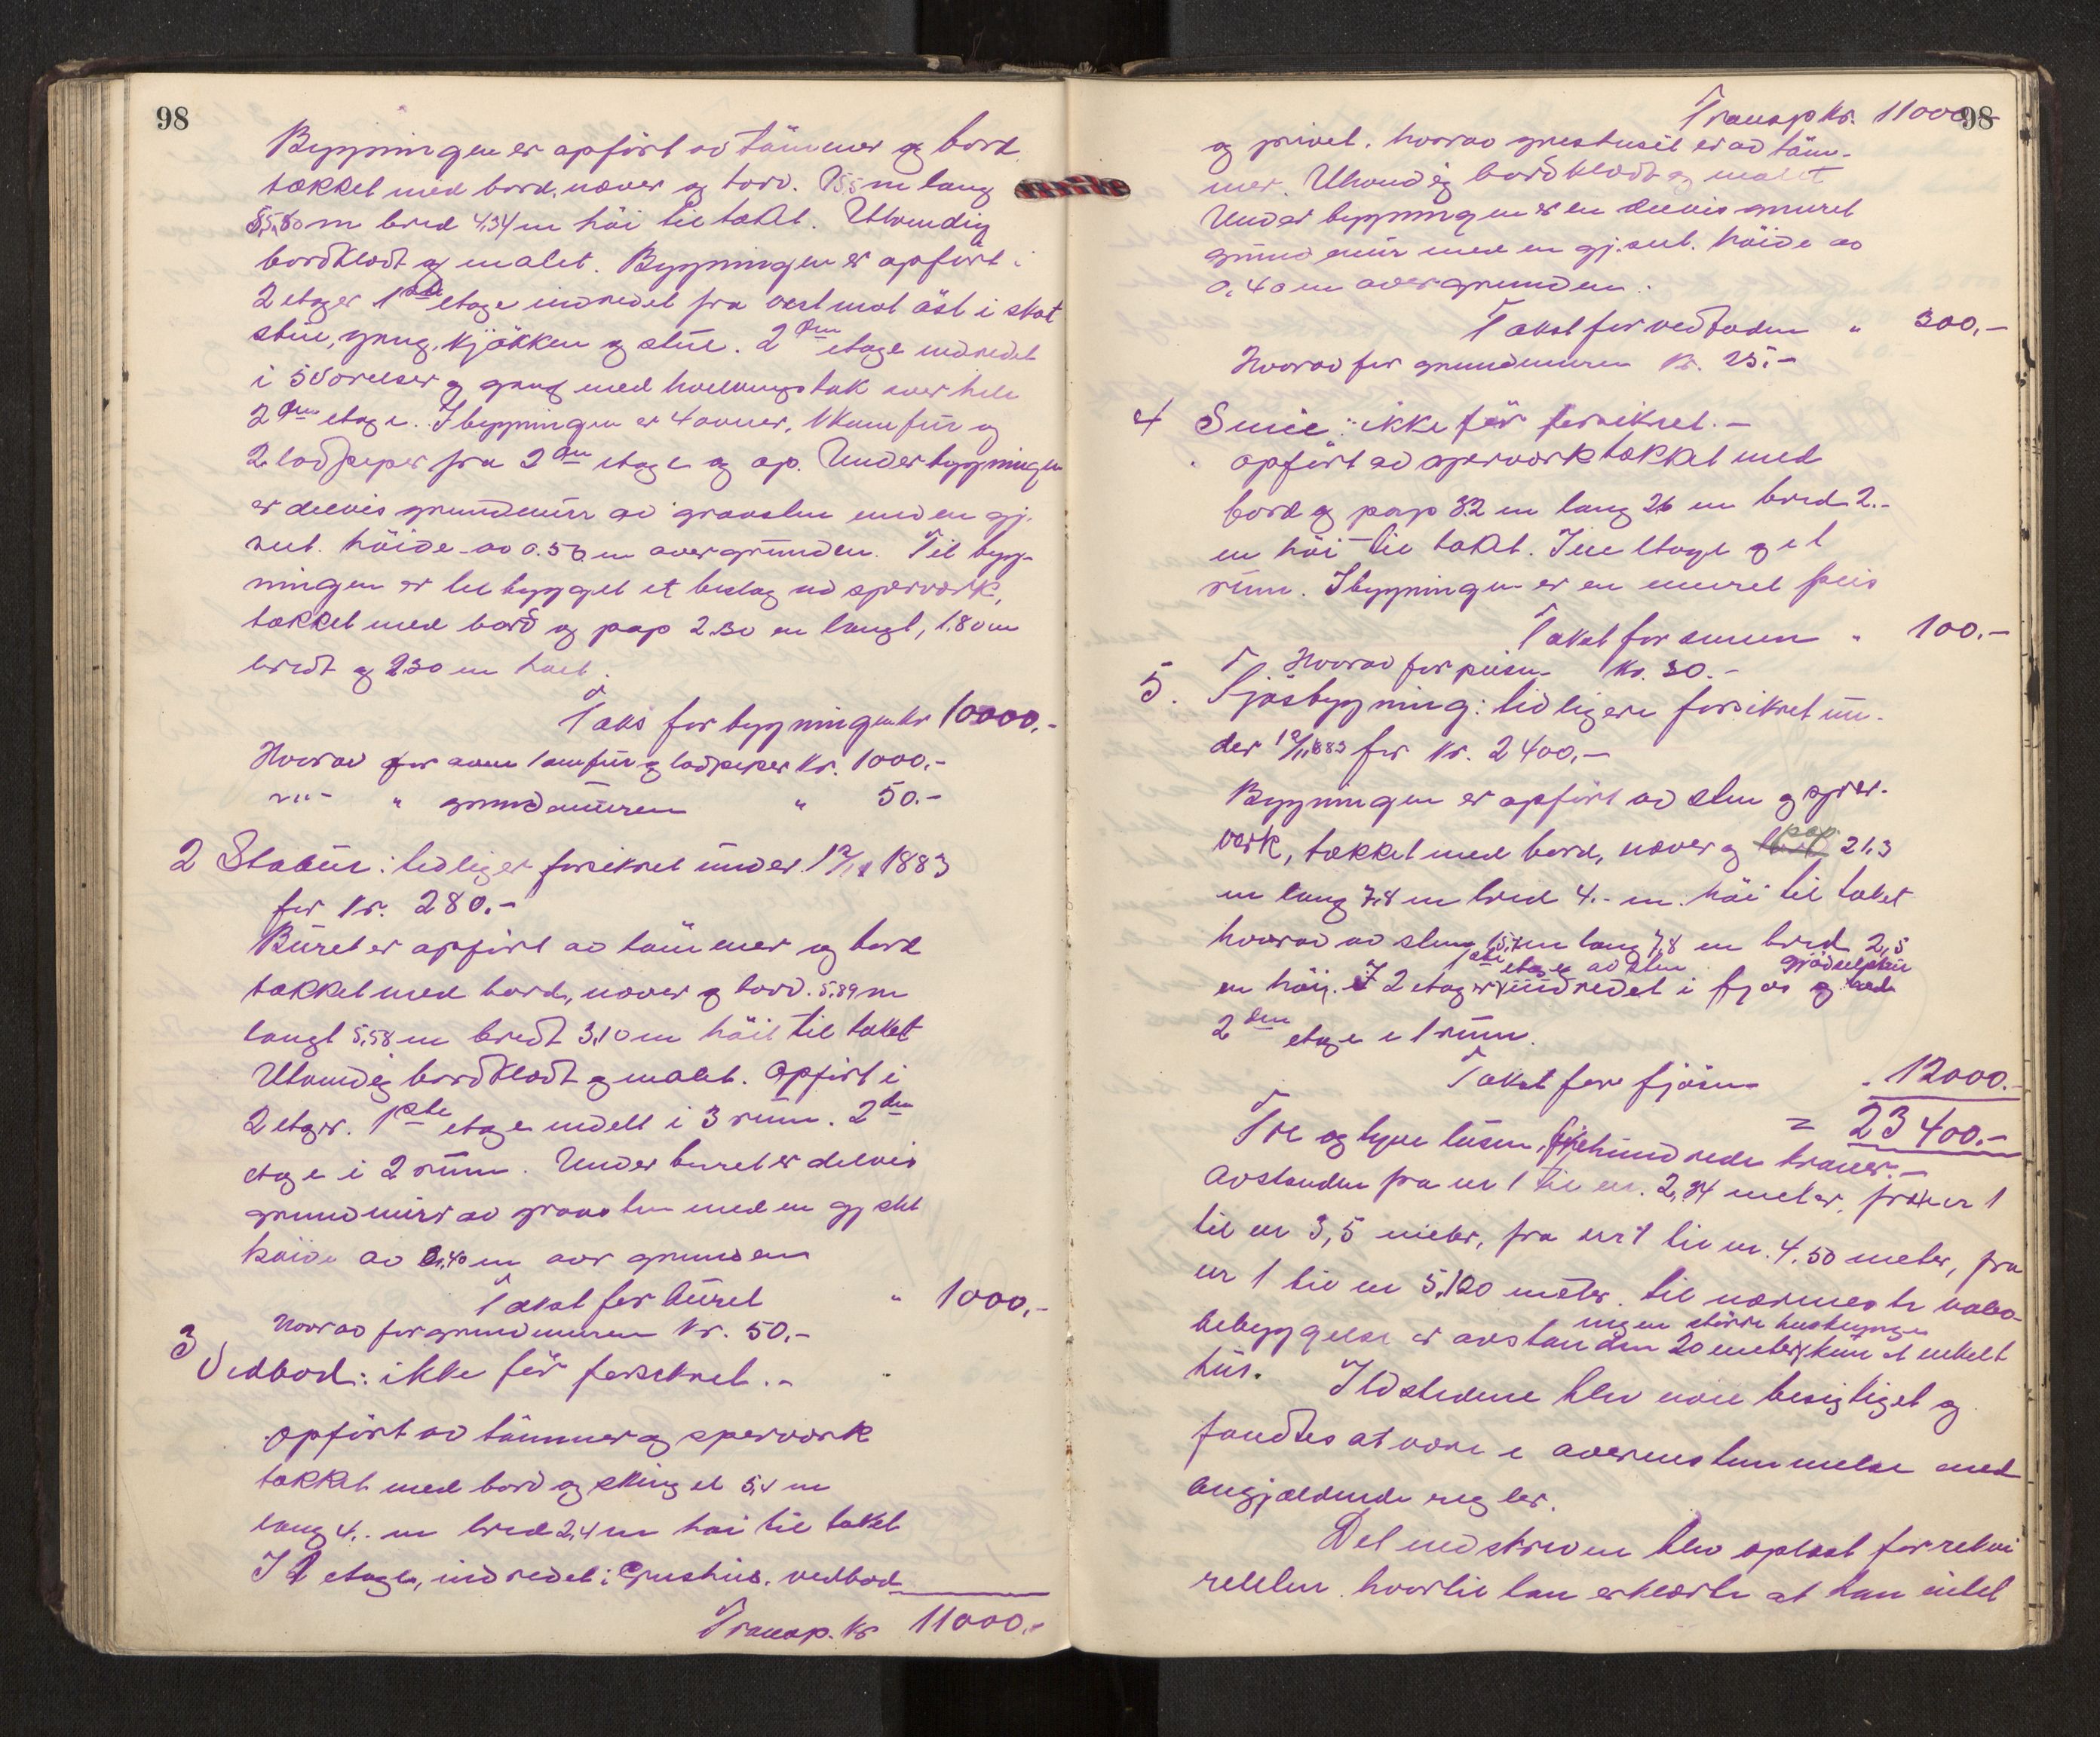 98
Bygningen er opført av tømmer og bord
tækket med bord, næver og torv. 15,5 m lang
5,60 m bred 4,34 m høi til taket. Utvendig
bordklædt og malet. Bygningen er opført i
2 etager 1ste etage indredet fra vest mot øst i skot
stue, gang, kjøkken og stue. 2den etage indredet
i 5 værelser og gang med hvelvingstak over hele
2den etage. I bygningen er 4 ovner, 1 komfur og
2 lodpiper fra 2den etage og op. Under bygningen
er delvis grundmur av graasten med en gj.
snit. høide av 0.50 m over grunden. Til byg-
ningen er tilbygget et bislag av sperværk,
tækket med bord og pap 2.30 m langt, 1.80 m
bredt og 2.30 m høit.
Takst for bygningen kr 10000.-
Hvorav for ovne komfur og lodpiper kr. 1000.-
-"- " grundmuren " 50.-
2 Stabur: tidliger forsikret under 12/11 1883
for kr. 280.-
Buret er opført av tømmer og bord
tækket med bord, næver og torv. 5,89 m
langt 5,58 m bredt 3,10 m høit til taket
Utvendig bordklædt og malet. Opført i
2 etager. 1ste etage indelt i 3 rum. 2den
etage i 2 rum. Under buret er delvis
grundmur av graasten med en gj. snit
høide av 0,40 m over grunden
Takst for buret " 1000,-
Hvorav for grundmuren kr. 50,-
3 Vedbod: ikke før forsikret.-
opført av tømmer og sperværk
tækket med bord og shingel 5,4 m
lang 4.- m bred 2,4 m høi til taket
I 1 etage, indredet i Grushus, vedbod
Transp. kr 11000.-
98
Transp kr. 11000
og privet. hvorav grushuset er av tøm-
mer. Utvendig bordklædt og malet
Under bygningen er en delvis muret
grundmur med en gj.snit. høide av
0.40 m over grunden.
Takst for vedboden " 300,-
Hvorav for grundmuren kr. 25.-
4 Smie: ikke før forsikret.-
opført av sperværk tækket med
bord og pap 3.2 m lang 2.6 m bred 2.-
m høi til taket. I en etage og et
rum. I bygningen er en muret peis
Takst for smien " 100.-
Hvorav for peisen kr. 30.-
5. Fjøsbygning: tidligere forsikret un-
der 12/11 1883 for kr. 2400,-
Bygningen er opført av sten og sper-
værk, tækket med bord, næver og pap 21.3
m lang 7,8 m bred 4.- m. høi til taket
hvorav av sten 15,- m lang 7,8 m bred 2,5
1ste etage av sten gjødselskur
m høi. I 2 etager indredet i fjøs og
2den etage i 1 rum.
Takst for fjøsen " 12000.-
= 23400.-
Tre og tyve tusen, firehundrede kroner.-
Avstanden fra nr 1 til nr. 2, 34 meter, fra nr 1
til nr 3, 5 meter, fra nr 1 til nr. 4. 50 meter, fra
nr 1 til nr 5, 120 meter. til nærmeste nabo-
ingen større husklynge
bebyggelse er avstanden 20 meter, kun et enkelt
hus. Ildstedene blev nøie besigtiget og
fandtes at være i overensstemmelse med
angjældende regler.
Det indskrevne blev oplæst for rekvi
renten hvortil han erklærte at han intet